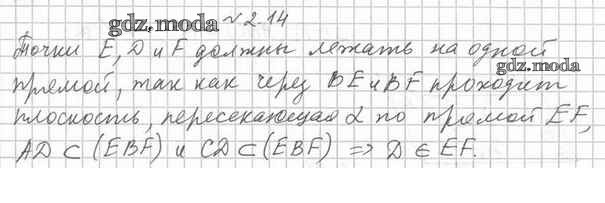 gdz.moda № 2.14
Точки E, D и F должны лежать на одной
gdz.moda
прямой, так как через BE и BF проходит
плоскость, пересекающая α по прямой EF,
AD ⊂ (EBF) и CD ⊂ (EBF) ⇒ D ∈ EF.